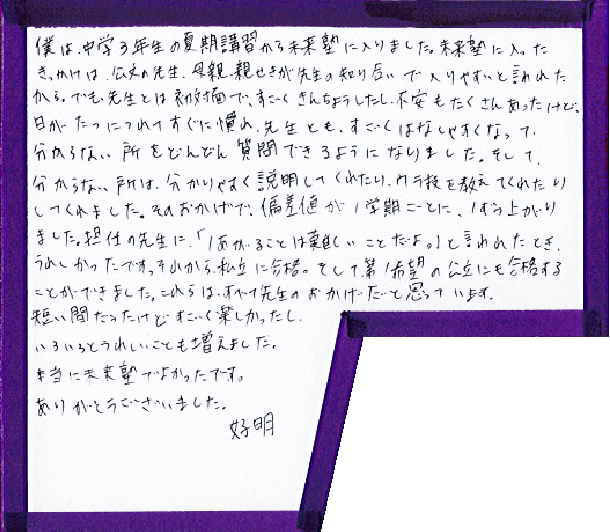 僕は、中学3年生の夏期講習から未来塾に入りました。未来塾に入った
きっかけは、公文の先生、母親、親せきが先生の知り合いで入りやすいと言われた
から。でも先生とは初対面で、すごくきんちょうしたし、不安もたくさんあったけど、
日がたつにつれてすぐに慣れ、先生とも、すごくはなしやすくなって、
分からない所をどんどん質問できるようになりました。そして、
分からない所は、分かりやすく説明してくれたり、ウラ技を教えてくれたり
してくれました。そのおかげで、偏差値が1学期ごとに、1ずつ上がり
ました。担任の先生に、「1あがることは難しいことだよ。」と言われたとき、
うれしかったです。それから、私立に合格。そして第1希望の公立にも合格する
ことができました。これらは、すべて先生のおかげだと思っています。
短い間だったけどすごく楽しかったし、
いろいろとうれしいことも増えました。
本当に未来塾でよかったです。
ありがとうございました。
好明